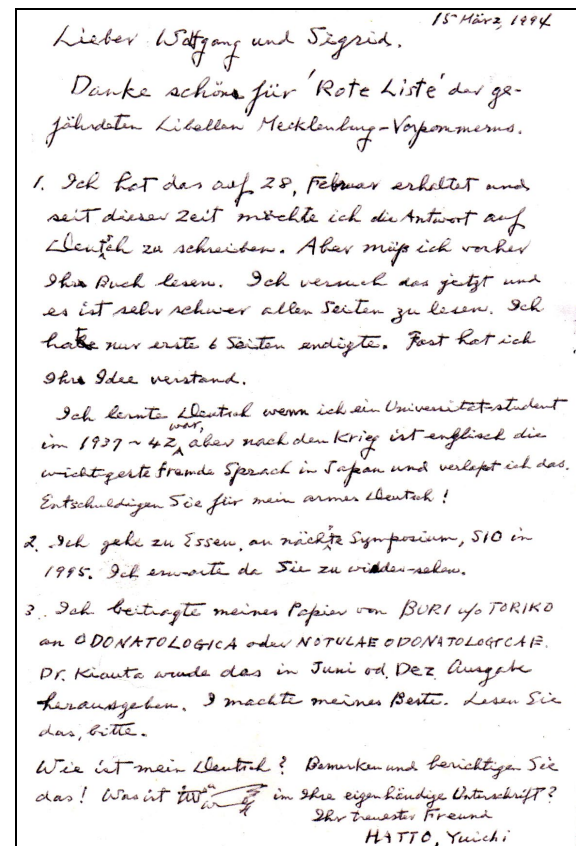 15 März, 1994
Lieber Wolfgang und Sigrid.
Danke schön für 'Rote Liste' der ge-
fährdeten Libellen Mecklenburg-Vorpommerns.
1. Ich hat das auf 28, Februar erhaltet und
seit dieser Zeit möchte ich die Antwort auf
Deutsch zu schreiben. Aber muß ich vorher
Ihre Buch lesen. Ich versuch das jetzt und
es ist sehr schwer allen Seiten zu lesen. Ich
hatte nur erste 6 Seiten endigte. Fast hat ich
Ihre Idee verstand.
Ich lernte Deutsch wenn ich ein Universität-student
im 1937~42 war, aber nach den Krieg ist englisch die
wichtigerste fremde Sprach in Japan und ich das.
Entschuldigen Sie für mein armes Deutsch!
2. Ich gehe zu Essen, an nächste Symposium, SIO in
1995. Ich erwarte da Sie zu wieder-sehen.
3. Ich beitragte meines Papier von BURI w/o TORIKO
an ODONATOLOGICA oder NOTULAE ODONATOLOGICAE.
Dr. Kiauta wurde das in Juni od. Dez Ausgabe
herausgeben. I machte meines Beste. Lesen Sie
das, bitte.
Wie ist mein Deutsch? Bemerken und berichtigen Sie
das! Was ist in Ihre eigenhändige Unterschrift?
Ihr treuester Freund
HATTO, Yuichi